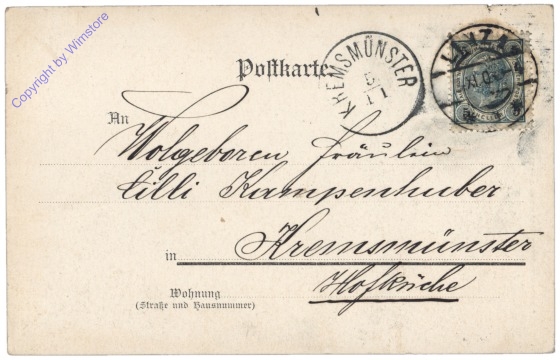 Copyright by Wimstore
Postkarte
KREMSMÜNSTER
5
11
An
Wolgeboren Fräulein
Cilli Kampenhuber
in Kremsmünster
Hofküche
Wohnung
(Straße und Hausnummer)